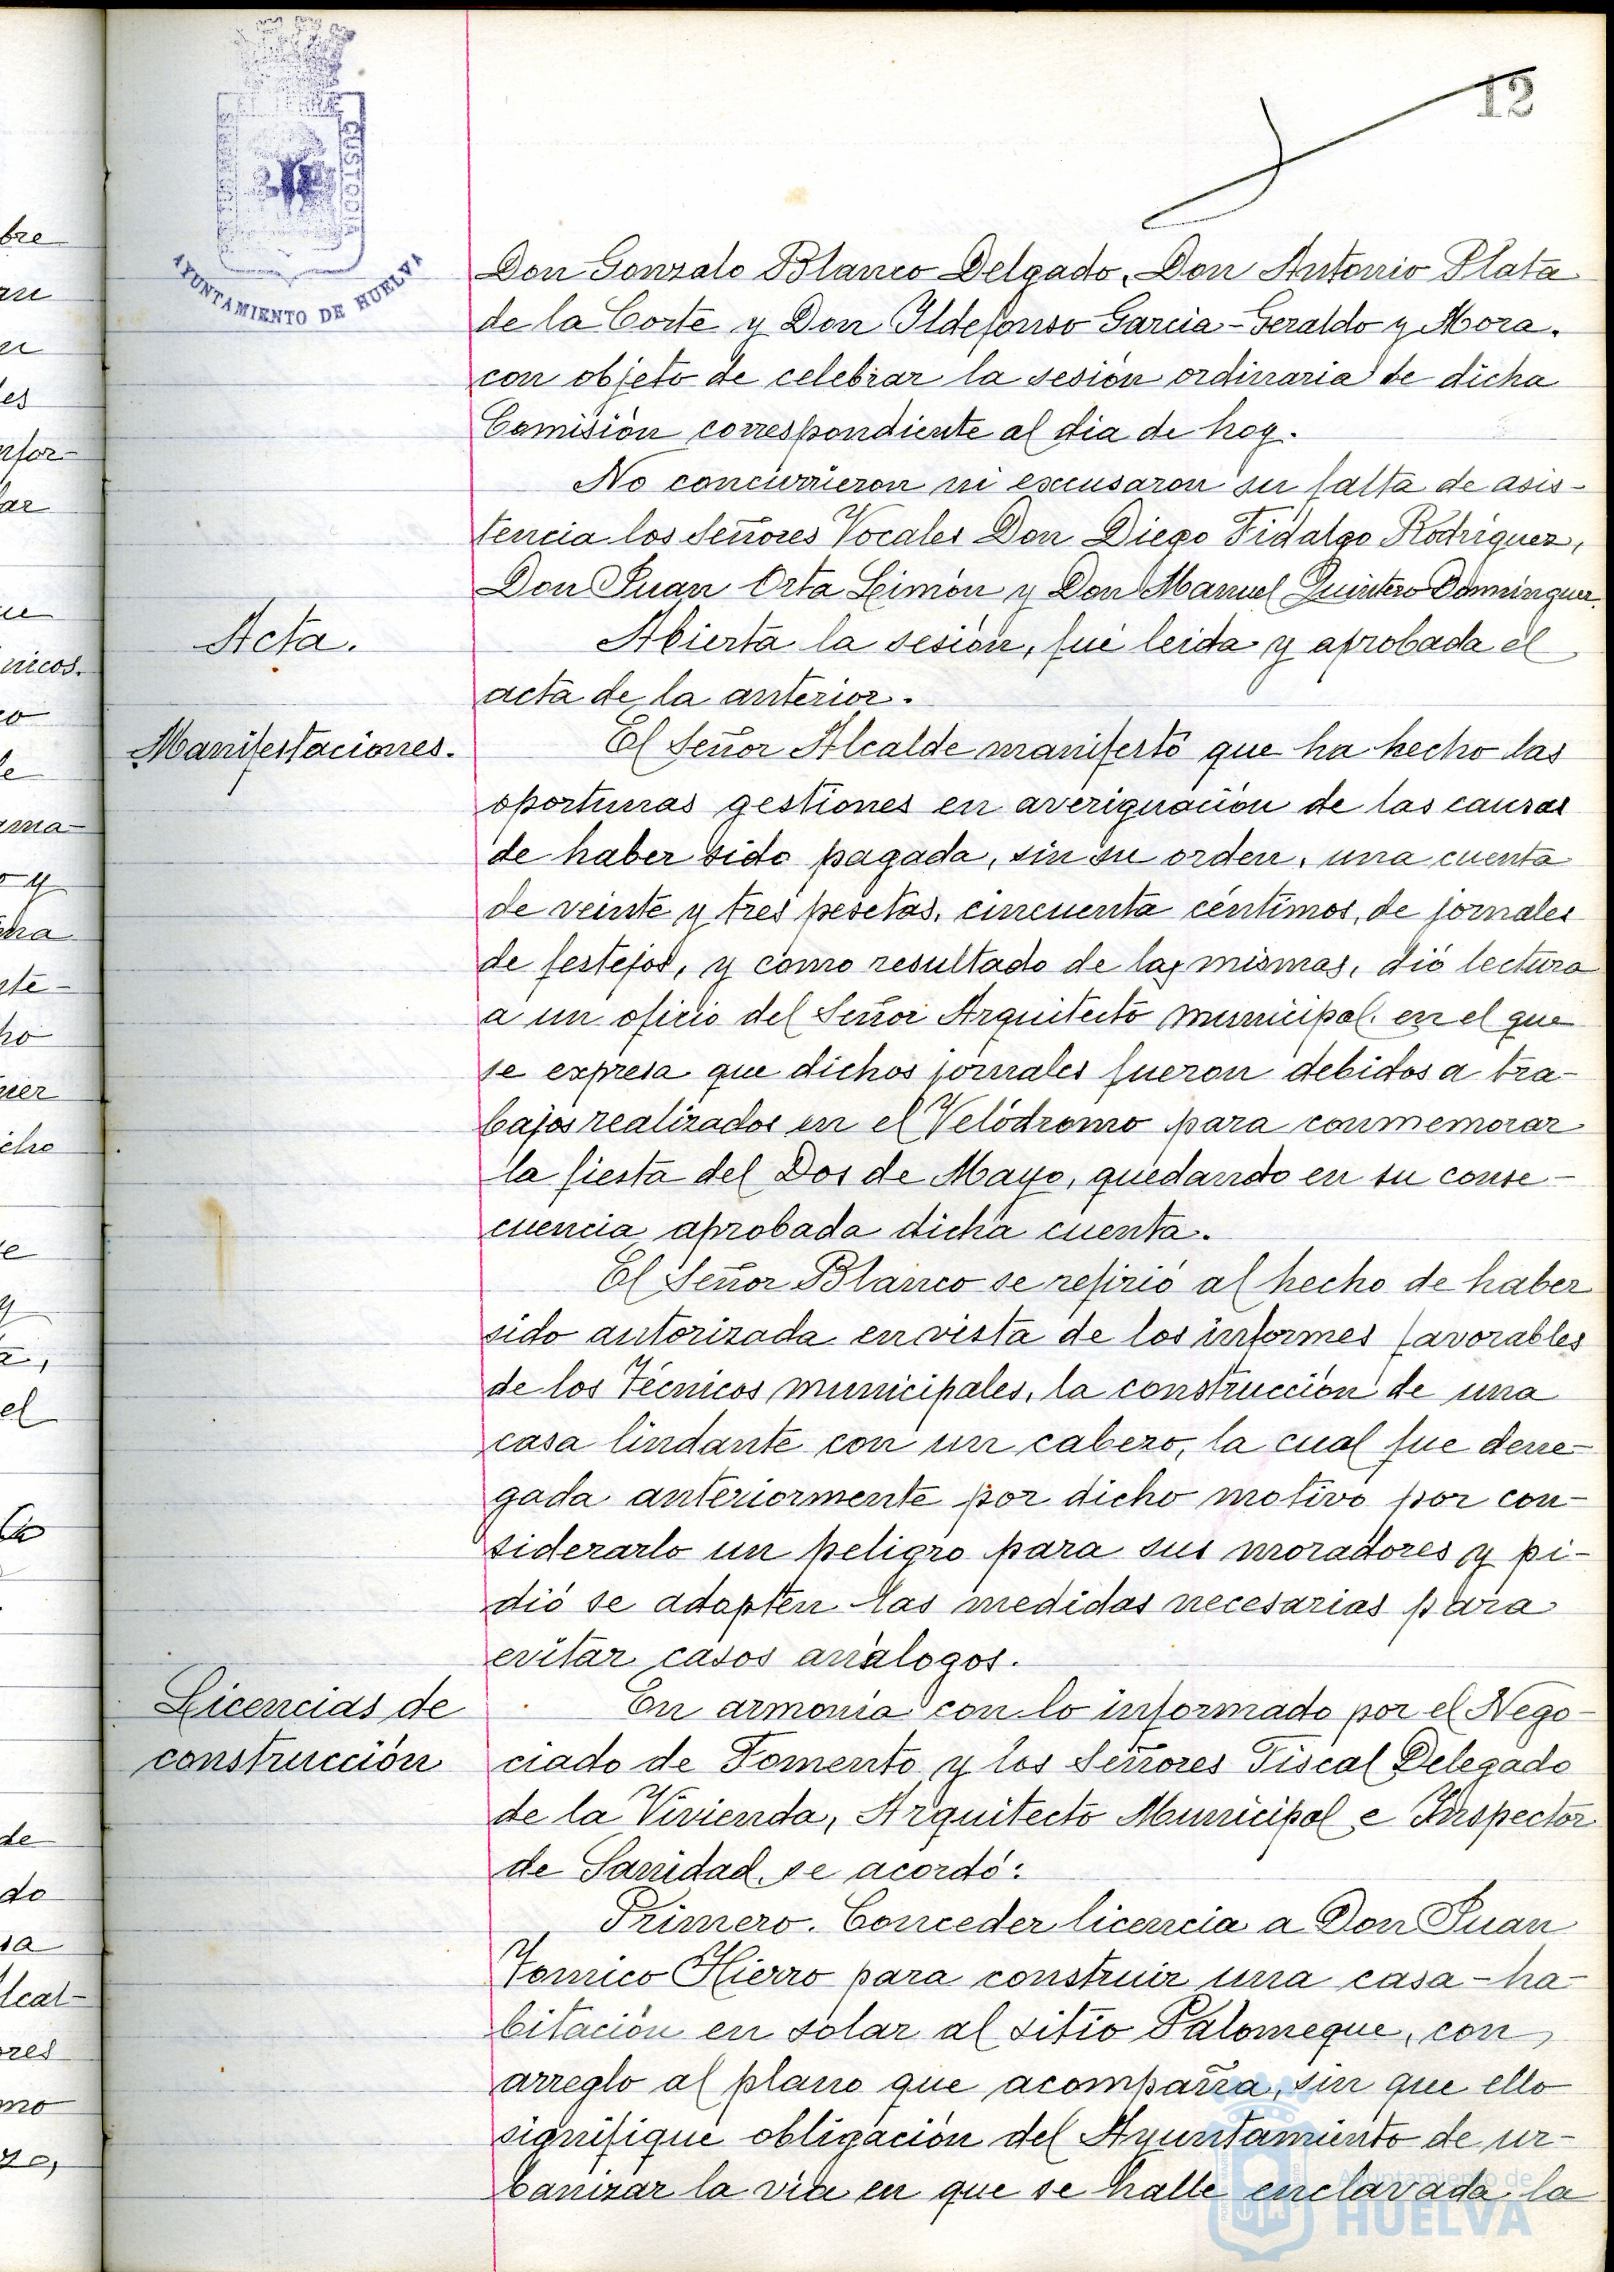 12
PORTUS MARIS
ET TERRAE
CUSTODIA
AYUNTAMIENTO DE HUELVA
Don Gonzalo Blanco Delgado, Don Antonio Plata
de la Corte y Don Ildefonso Garcia-Geraldo y Mora,
con objeto de celebrar la sesión ordinaria de dicha
Comisión correspondiente al dia de hoy.
No concurrieron ni excusaron su falta de asis-
tencia los Señores Vocales Don Diego Fidalgo Rodríguez,
Don Juan Orta Limón y Don Manuel Quintero Domínguez.
Acta.
Abierta la sesión, fué leida y aprobada el
acta de la anterior.
Manifestaciones.
El Señor Alcalde manifestó que ha hecho las
oportunas gestiones en averiguación de las causas
de haber sido pagada, sin su orden, una cuenta
de veinte y tres pesetas, cincuenta céntimos, de jornales
de festejos, y como resultado de las mismas, dió lectura
a un oficio del Señor Arquitecto municipal en el que
se expresa que dichos jornales fueron debidos a tra-
bajos realizados en el Velódromo para conmemorar
la fiesta del Dos de Mayo, quedando en su conse-
cuencia aprobada dicha cuenta.
El Señor Blanco se refirió al hecho de haber
sido autorizada en vista de los informes favorables
de los Técnicos municipales, la construcción de una
casa lindante con un cabezo, la cual fue dene-
gada anteriormente por dicho motivo por con-
siderarlo un peligro para sus moradores y pi-
dió se adopten las medidas necesarias para
evitar casos análogos.
Licencias de
construcción
En armonía con lo informado por el Nego-
ciado de Fomento y los Señores Fiscal Delegado
de la Vivienda, Arquitecto Municipal e Inspector
de Sanidad se acordó:
Primero. Conceder licencia a Don Juan
Tomico Hierro para construir una casa-ha-
bitación en solar al sitio Palomeque, con
arreglo al plano que acompaña, sin que ello
signifique obligación del Ayuntamiento de ur-
banizar la via en que se halle enclavada la
Ayuntamiento de
HUELVA